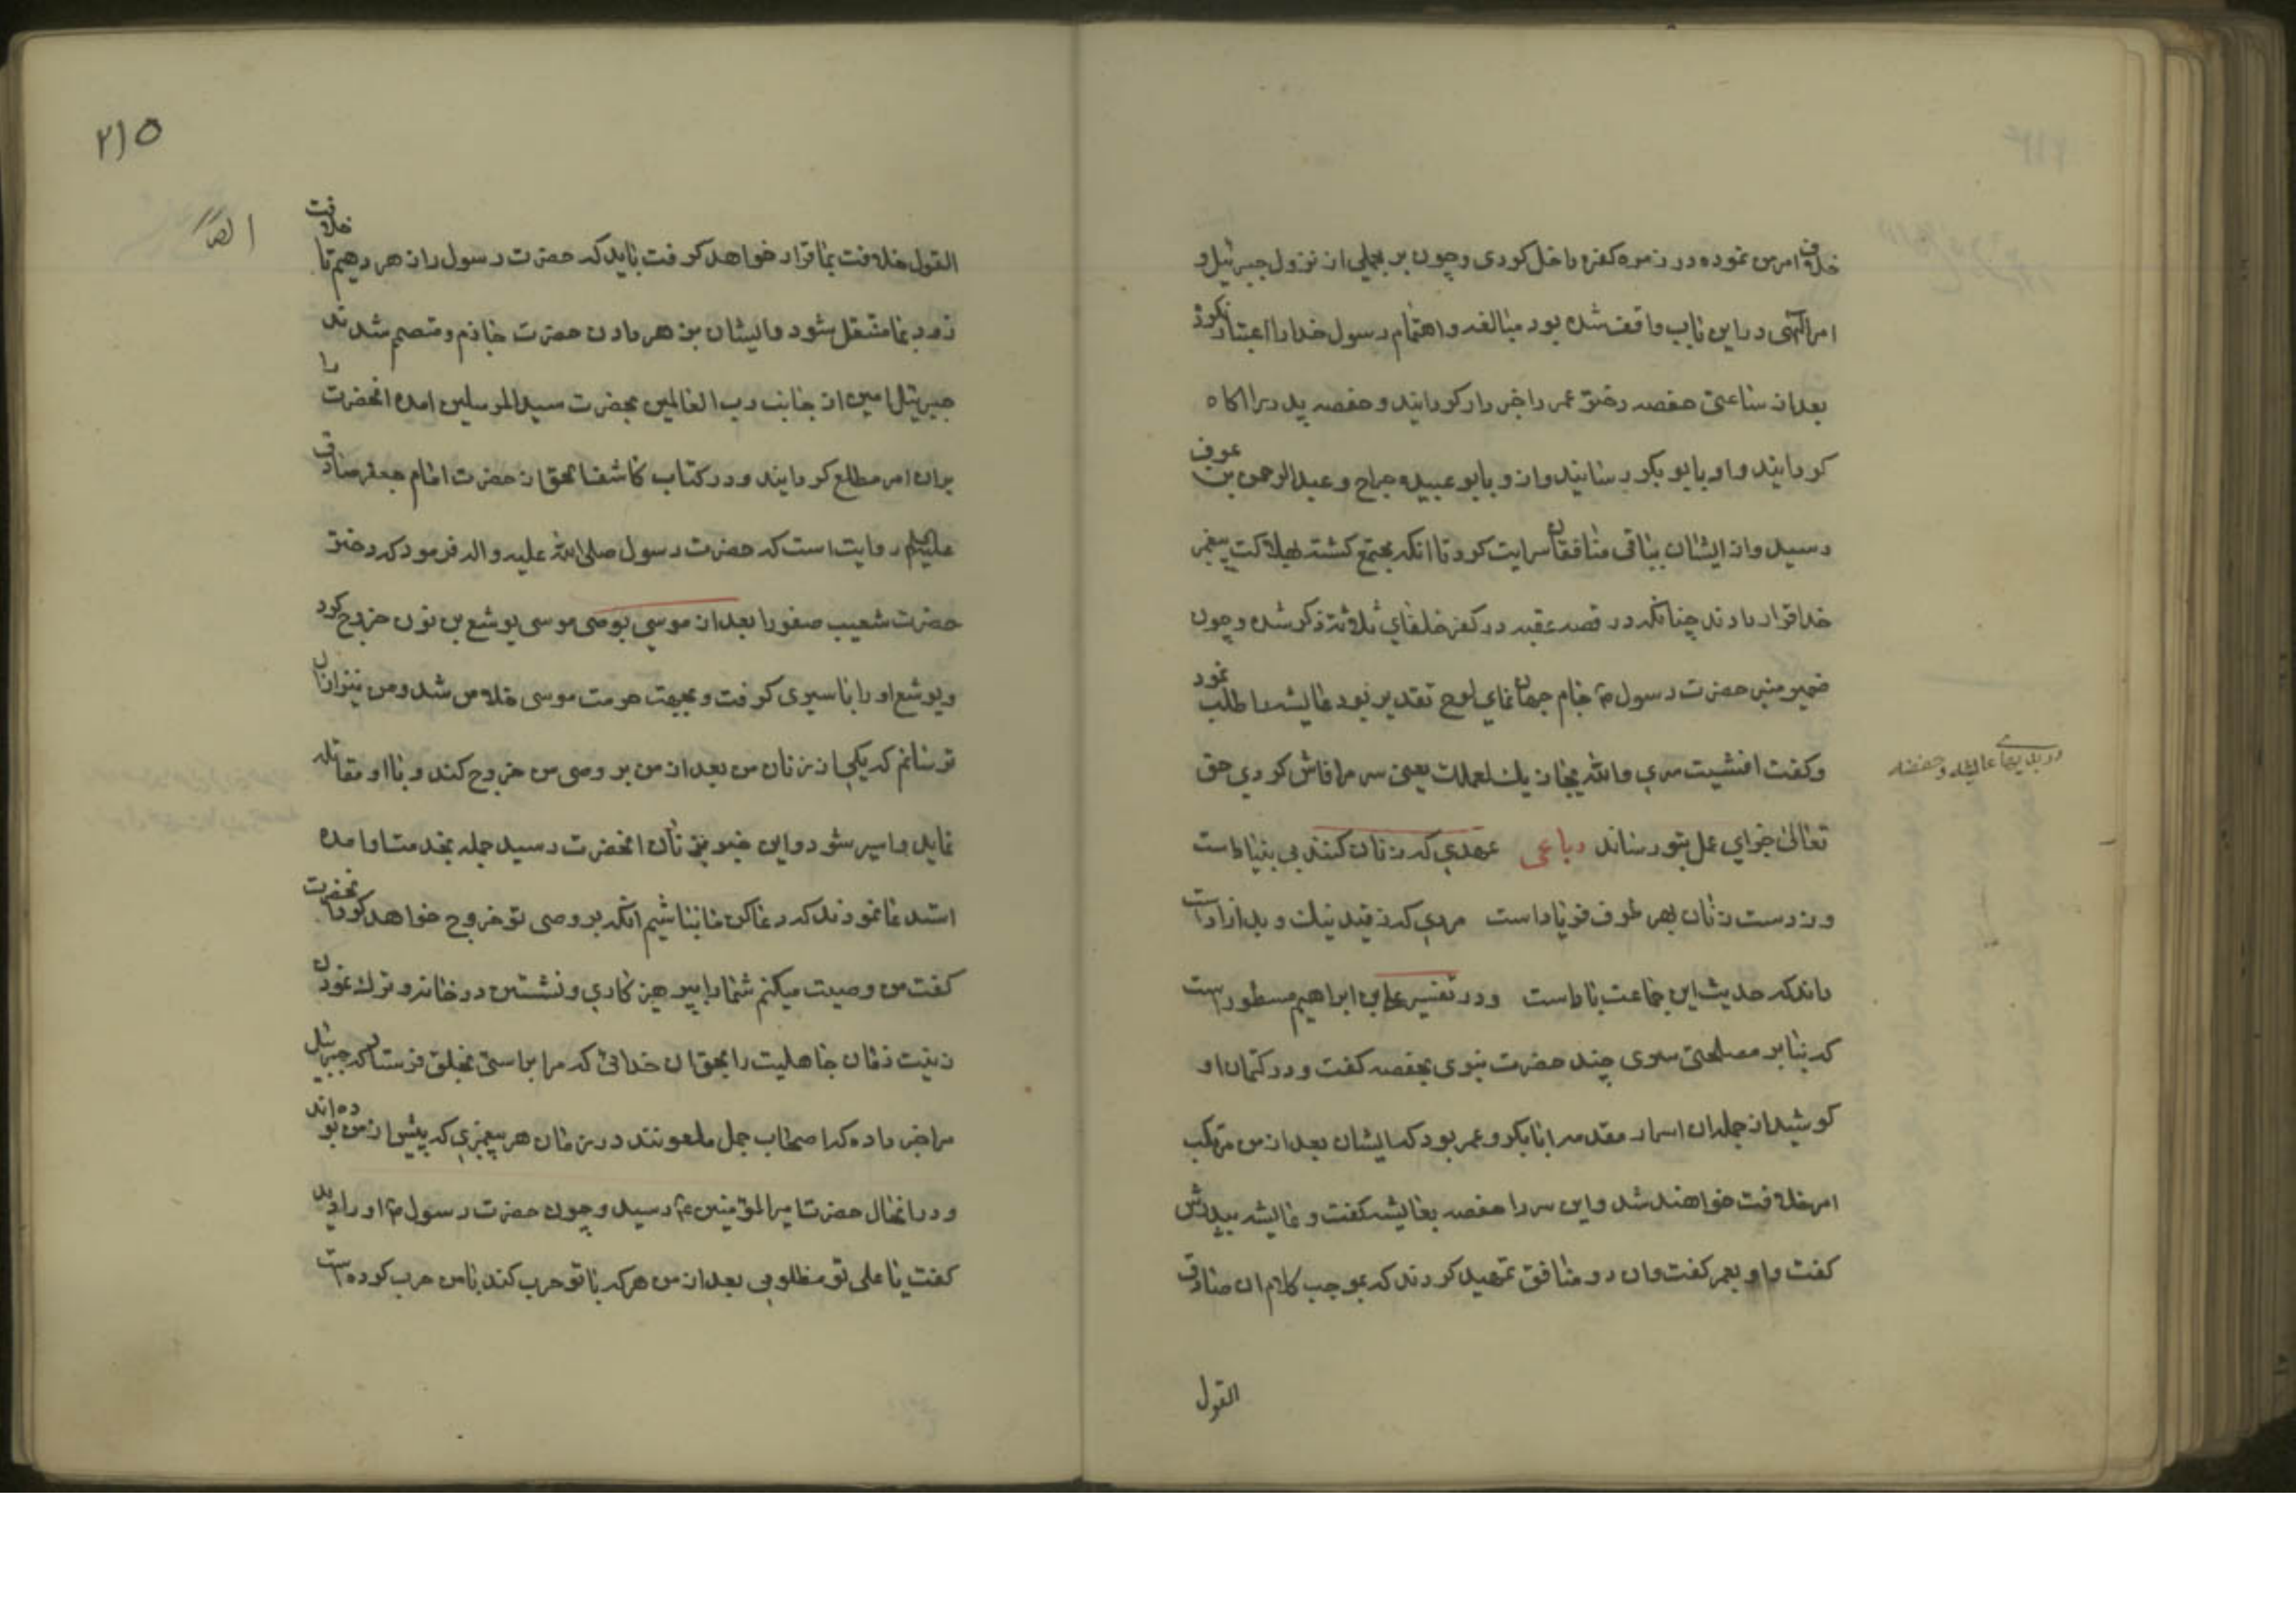 خلاف امر من نموده در زمره کفره داخل کردی و چون بر بجملی از نزول جبرئیل و
امر الهی در این باب واقف شده بود مبالغه و اهتمام رسول خدا را اعتبار نکرد
بعد از ساعتی حفصه دختر عمر را خبردار کردانید و حفصه پدر را اکاه
کردانید و او بابو بکر رسانید و از و بابو عبیده جراح و عبد الرحمن بن عوف
رسید و از ایشان بباقی منافقان سرایت کرد تا انکه مجتمع کشته بهلاکت پیغمبر
خدا قرار دادند چنانکه در قصه عقبه در کفر خلفای ثلاثه ذکر شده و چون
ضمیر منیر حضرت رسول ص جام جهان نمای لوح تقدیر بود عایشه را طلب نمود
و کفت افشیت سری والله یجازیك لعملك یعنی سر مرا فاش کردی حق
دربدیها عایشه و حفصه
تعالی جزای عمل بتو رساند رباعی عهدی که زنان کنند بی بنیاداست
وز دست زنان بهر طرف فریاداست مردی که ز قید نیك و بد ازاداست
داند که حدیث این جماعت باداست و در تفسیر علی بن ابراهیم مسطور است
که بنا بر مصلحتی سری چند حضرت نبوی بحفصه کفت و در کتمان او
کوشید از جمله ان اسرار مقدمه ابابکر و عمر بود که ایشان بعد از من مرتکب
امر خلافت خواهند شد و این سر را حفصه بعایشه کفت و عایشه بپدرش
کفت و او بعمر کفت و ان دو منافق تمهید کردند که بموجب کلام ان صادق
القول
۲۱۵
القول خلافت بما قرار خواهد کرفت باید که حضرت رسول را زهر دهیم تا خلافت
زود بما منتقل شود و ایشان بزهر دادن حضرت جازم و متصمم شدند
جبرئیل امین از جانب رب العالمین بحضرت سید المرسلین امده انحضرت را
بران امر مطلع کردانید و در کتاب کاشف الحق از حضرت امام جعفر صادق
علیه السلم روایت است که حضرت رسول صلی الله علیه و اله فرمود که دختر
حضرت شعیب صفورا بعد از موسی بوصی موسی یوشع بن نون خروج کرد
و یوشع او را باسیری کرفت و بجهت حرمت موسی خلاص شد و من نیز از ان
ترسانم که یکی از زنان من بعد از من بر وصی من خروج کند و با او مقاتله
نماید و اسیر شود و این خبر بزنان انحضرت رسید جمله بخدمت او امده
استدعا نمودند که دعا کن ما نباشیم انکه بر وصی تو خروج خواهد کرد انحضرت
کفت من وصیت میکنم شما را بپرهیزکاری و نشستن در خانه و ترك نمودن
زینت زمان جاهلیت را بحق ان خدائی که مرا براستی بخلق فرستاد که جبرئیل
مرا خبر داده که اصحاب جمل ملعونند در زمان هر پیغمبری که پیش از من بوده‌اند
و در انحال حضرت امیر المؤمنین ع رسید و چون حضرت رسول ص او را دید
کفت یا علی تو مظلومی بعد از من هر که با تو حرب کند با من حرب کرده است